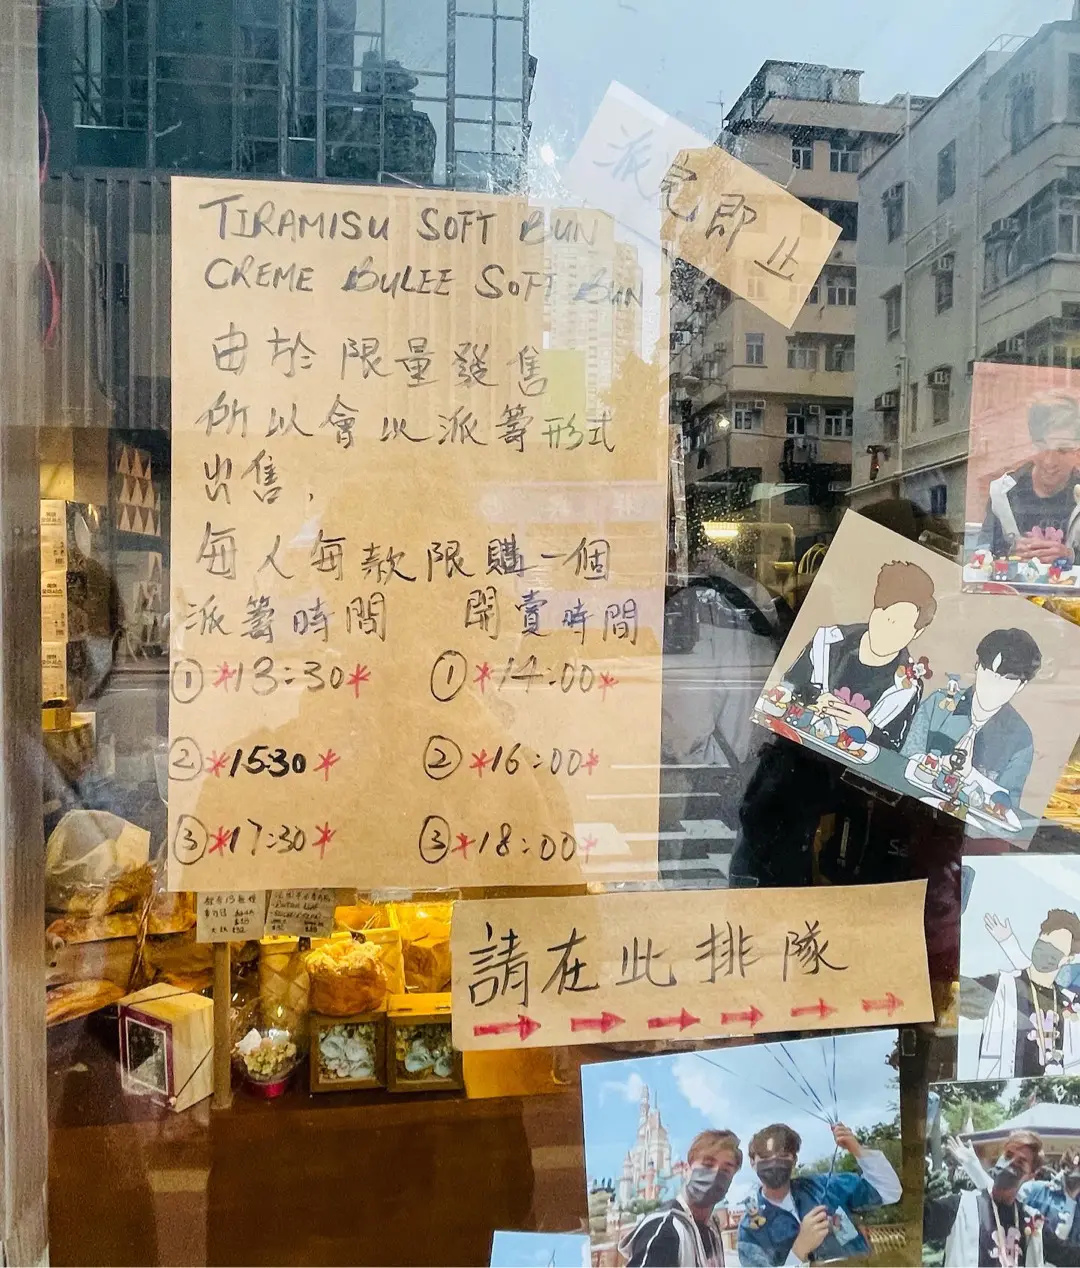 派完即止
TIRAMISU SOFT BUN
CREME BULEE SOFT BUN
由於限量發售
所以會以派籌形式
出售,
每人每款限購一個
派籌時間 開賣時間
①*13:30* ①*14:00*
②*1530* ②*16:00*
③*17:30* ③*18:00*
請在此排隊